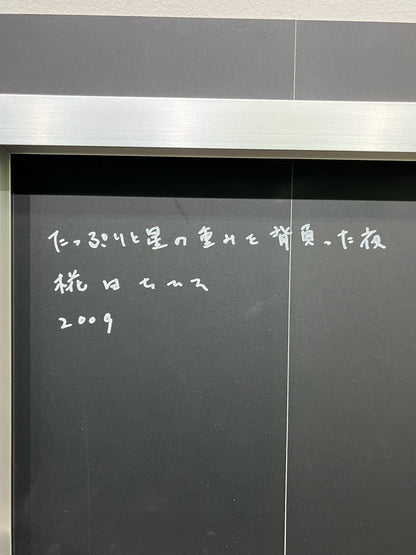 たっぷりと星の重みを背負った夜
椛田ちひろ
2009